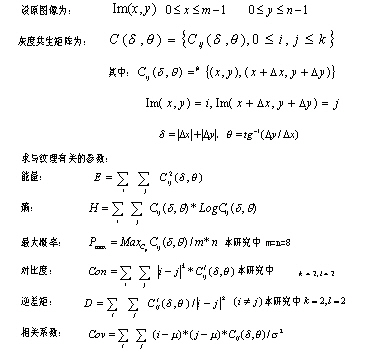 设原图像为: Im(x, y) 0 ≤ x ≤ m − 1 0 ≤ y ≤ n − 1
灰度共生矩阵为: C(δ, θ) = {C_ij(δ, θ), 0 ≤ i, j ≤ k}
其中: C_ij(δ, θ) =^# {(x, y), (x + Δx, y + Δy)}
Im(x, y) = i, Im(x + Δx, y + Δy) = j
δ = |Δx| + |Δy|, θ = tg^-1(Δy/Δx)
求与纹理有关的参数:
能量: E = ∑_i ∑_j C_ij^2(δ, θ)
熵: H = ∑_i ∑_j C_ij(δ, θ) * Log C_ij(δ, θ)
最大概率: P_max = Max C_ij(δ, θ) / m * n 本研究中 m=n=8
对比度: Con = ∑_i ∑_j |i − j|^k * C_ij^l(δ, θ) 本研究中 k = 2, l = 2
逆差矩: D = ∑_i ∑_j C_ij^l(δ, θ) / |i − j|^k (i ≠ j) 本研究中 k = 2, l = 2
相关系数: Cov = ∑_i ∑_j (i − μ) * (j − μ) * C_ij(δ, θ) / σ^2